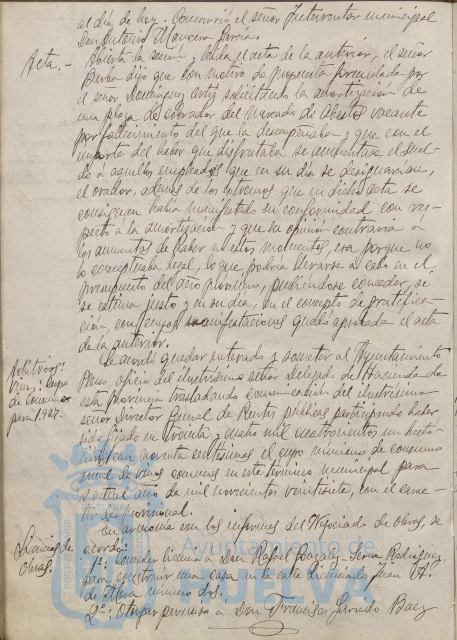 al día de hoy. Concurrió el señor Interventor municipal
Don Antonio Mancera García.
Acta.- Abierta la sesión y leida el acta de la anterior, el señor
Barba dijo que con motivo de propuesta formulada por
el señor Domínguez Ortiz solicitando la amortización de
una plaza de cobrador del Mercado de Abastos vacante
por fallecimiento del que la desempeñaba y que con el
importe del haber que disfrutaba se aumentase el suel-
do a aquellos empleados que en su día se designarían,
el orador, además de los extremos que en dicha acta se
consignan había manifestado su conformidad con res-
pecto a la amortización y que su opinión contraria a
los aumentos de haber en estos momentos, era porque no
lo conceptuaba legal, lo que podría llevarse a cabo en el
presupuesto del año próximo, pudiéndose conceder, si
se estima justo y en su día, en el concepto de gratifica-
ción, con cuyas manifestaciones quedó aprobada el acta
de la anterior.
Arbitrios:
Vinos: cupo
de consumo
para 1927.
Se acordó quedar enterado y someter al Ayuntamiento
Pleno, oficio del ilustrísimo señor Delegado de Hacienda de
esta provincia trasladando comunicación del ilustrísimo
señor Director General de Rentas públicas participando haber
sido fijado en treinta y cuatro mil cuatrocientos un hecto-
litros con noventa centésimas el cupo mínimo de consumo
anual de vinos comunes en este término municipal para
el actual año de mil novecientos veintisiete, con el carac-
ter de provisional.
Licencias de
Obras.
En armonía con los informes del Negociado de obras, se
acordó:
1º: Conceder licencia a Don Rafael González-Serna Rodríguez
para construir una casa en la calle Licenciado Juan A.
de Mora número dos.
2º: Otorgar permiso a Don Francisco Garrido Baez
Ayuntamiento de
HUELVA